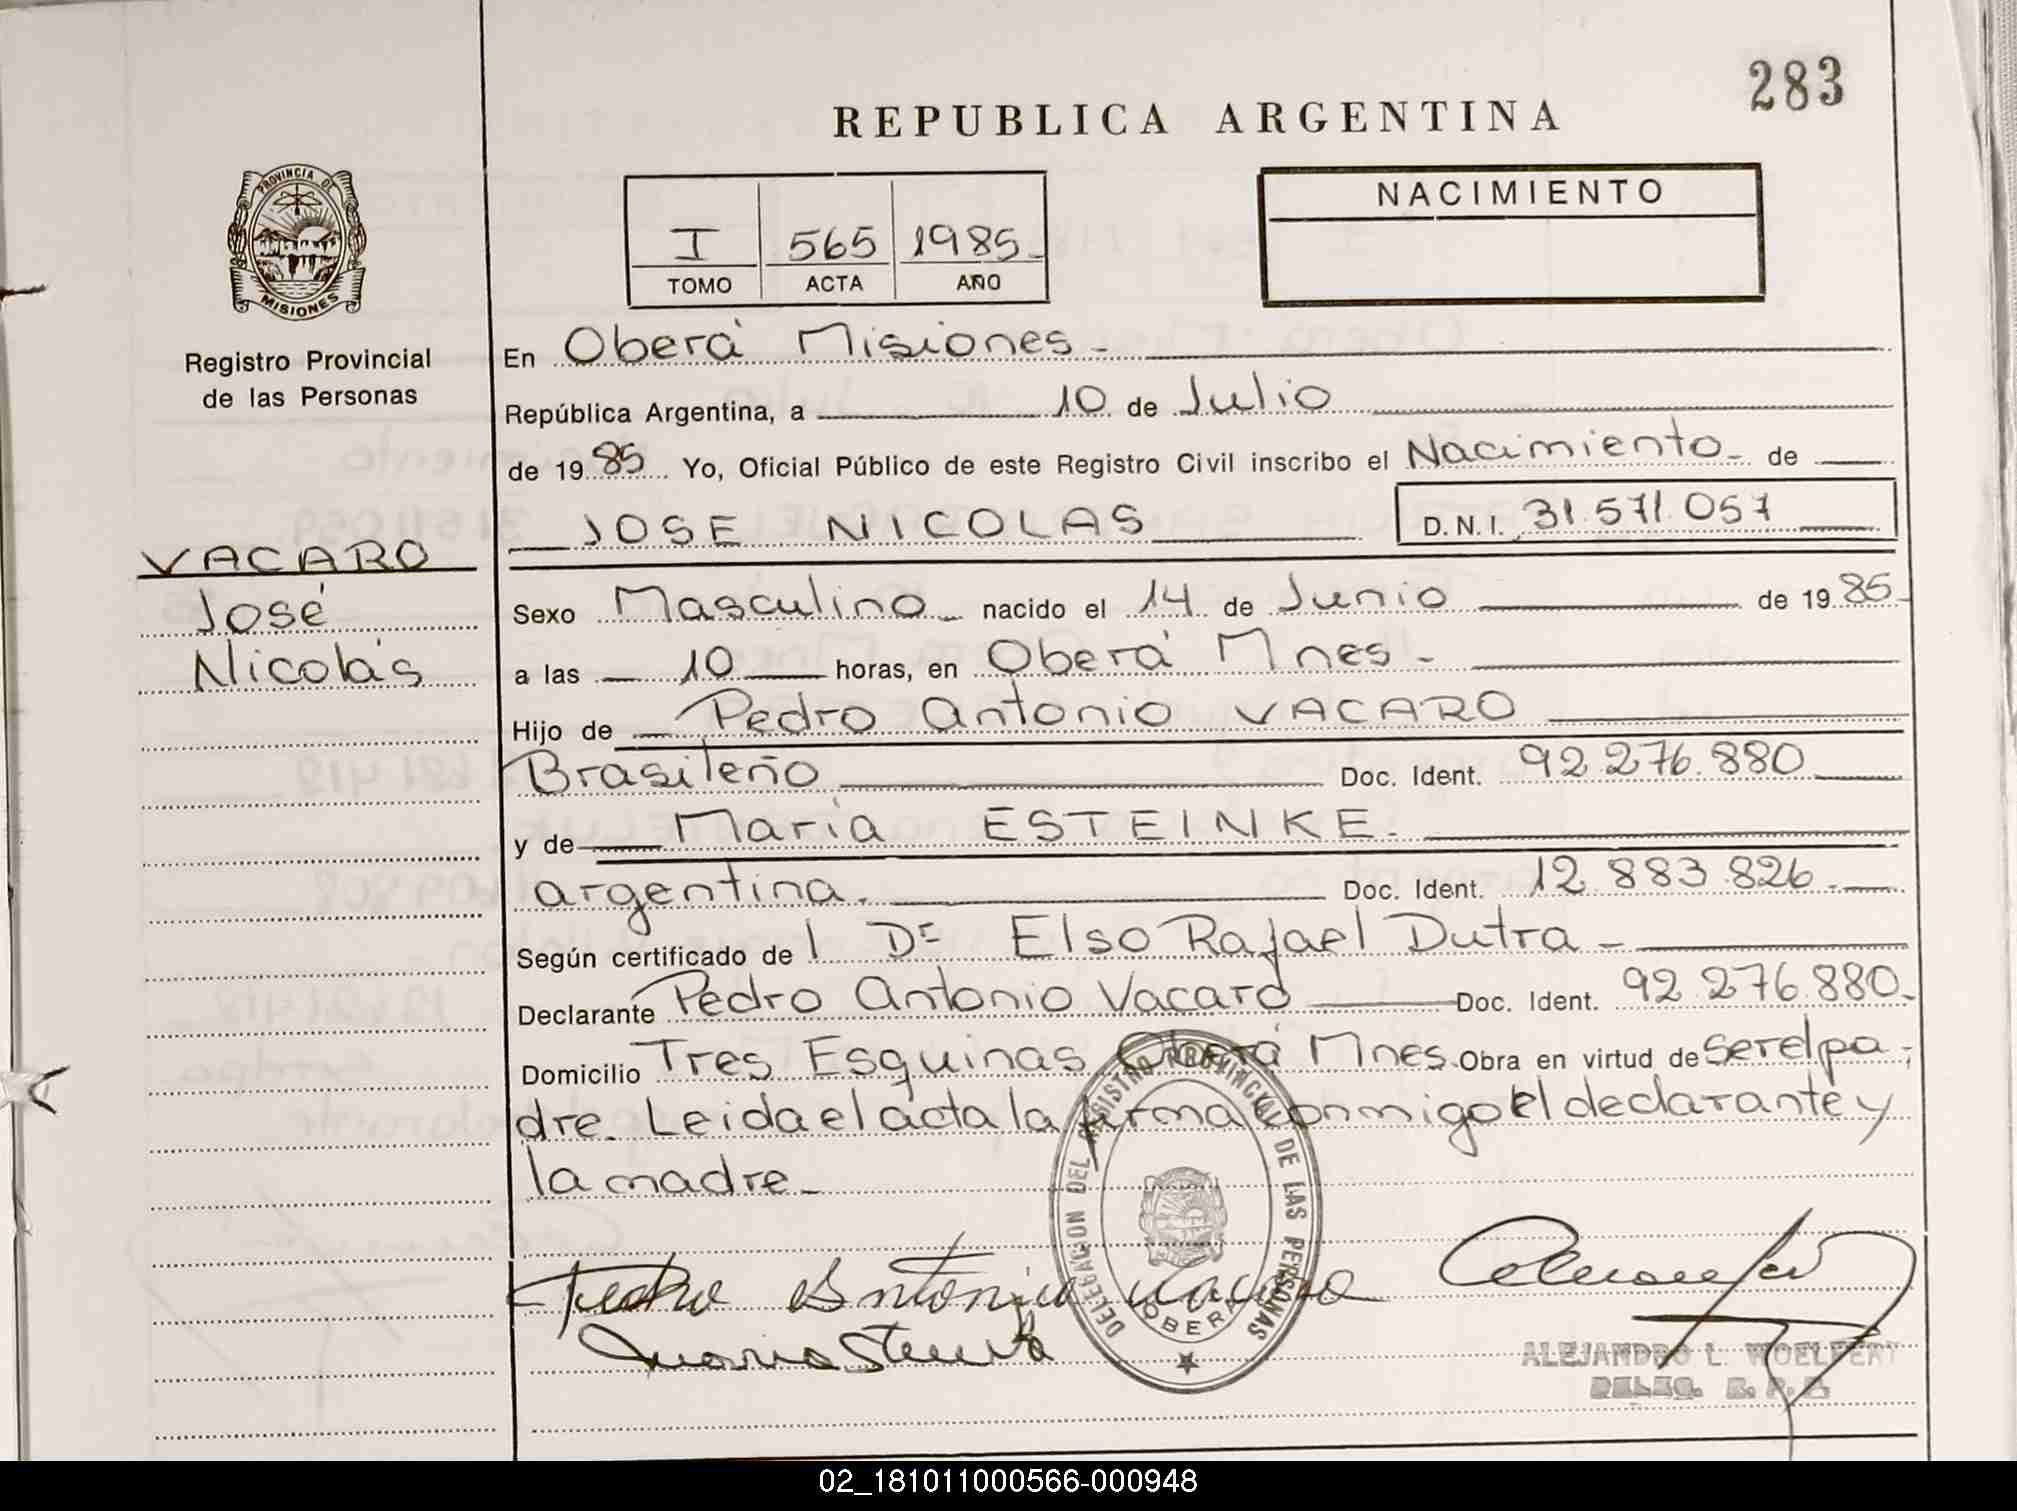 283
REPUBLICA ARGENTINA
PROVINCIA DE
MISIONES
Registro Provincial
de las Personas
I 565 1985
TOMO ACTA AÑO
NACIMIENTO
En Oberá Misiones-
República Argentina, a 10 de Julio
de 1985 Yo, Oficial Público de este Registro Civil inscribo el Nacimiento- de
JOSE NICOLAS D.N.I. 31.571.057
VACARO
José
Nicolás
Sexo Masculino nacido el 14 de Junio de 1985-
a las 10 horas, en Oberá Mnes-
Hijo de Pedro Antonio VACARO
Brasileño Doc. Ident. 92.276.880
y de María ESTEINKE.
argentina. Doc. Ident. 12.883.826.
Según certificado de l Dr Elso Rafael Dutra-
Declarante Pedro Antonio Vacaro Doc. Ident. 92.276.880-
Domicilio Tres Esquinas Oberá Mnes. Obra en virtud de ser el pa-
dre. Leida el acta la firma conmigo el declarante y
la madre-
DELEGACION DEL REGISTRO PROVINCIAL DE LAS PERSONAS
OBERA
Pedro Antonio Vacaro
ALEJANDRO L. WOELFERT
DELEG. R. P. P.
02_181011000566-000948